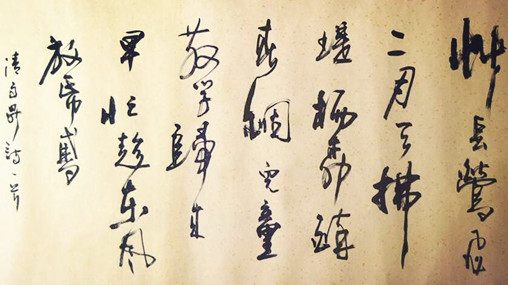 艸長鶯飛
二月天拂
堤楊柳醉
春烟兒童
散学歸来
早忙趁東风
放帋鳶
清高鼎詩一首